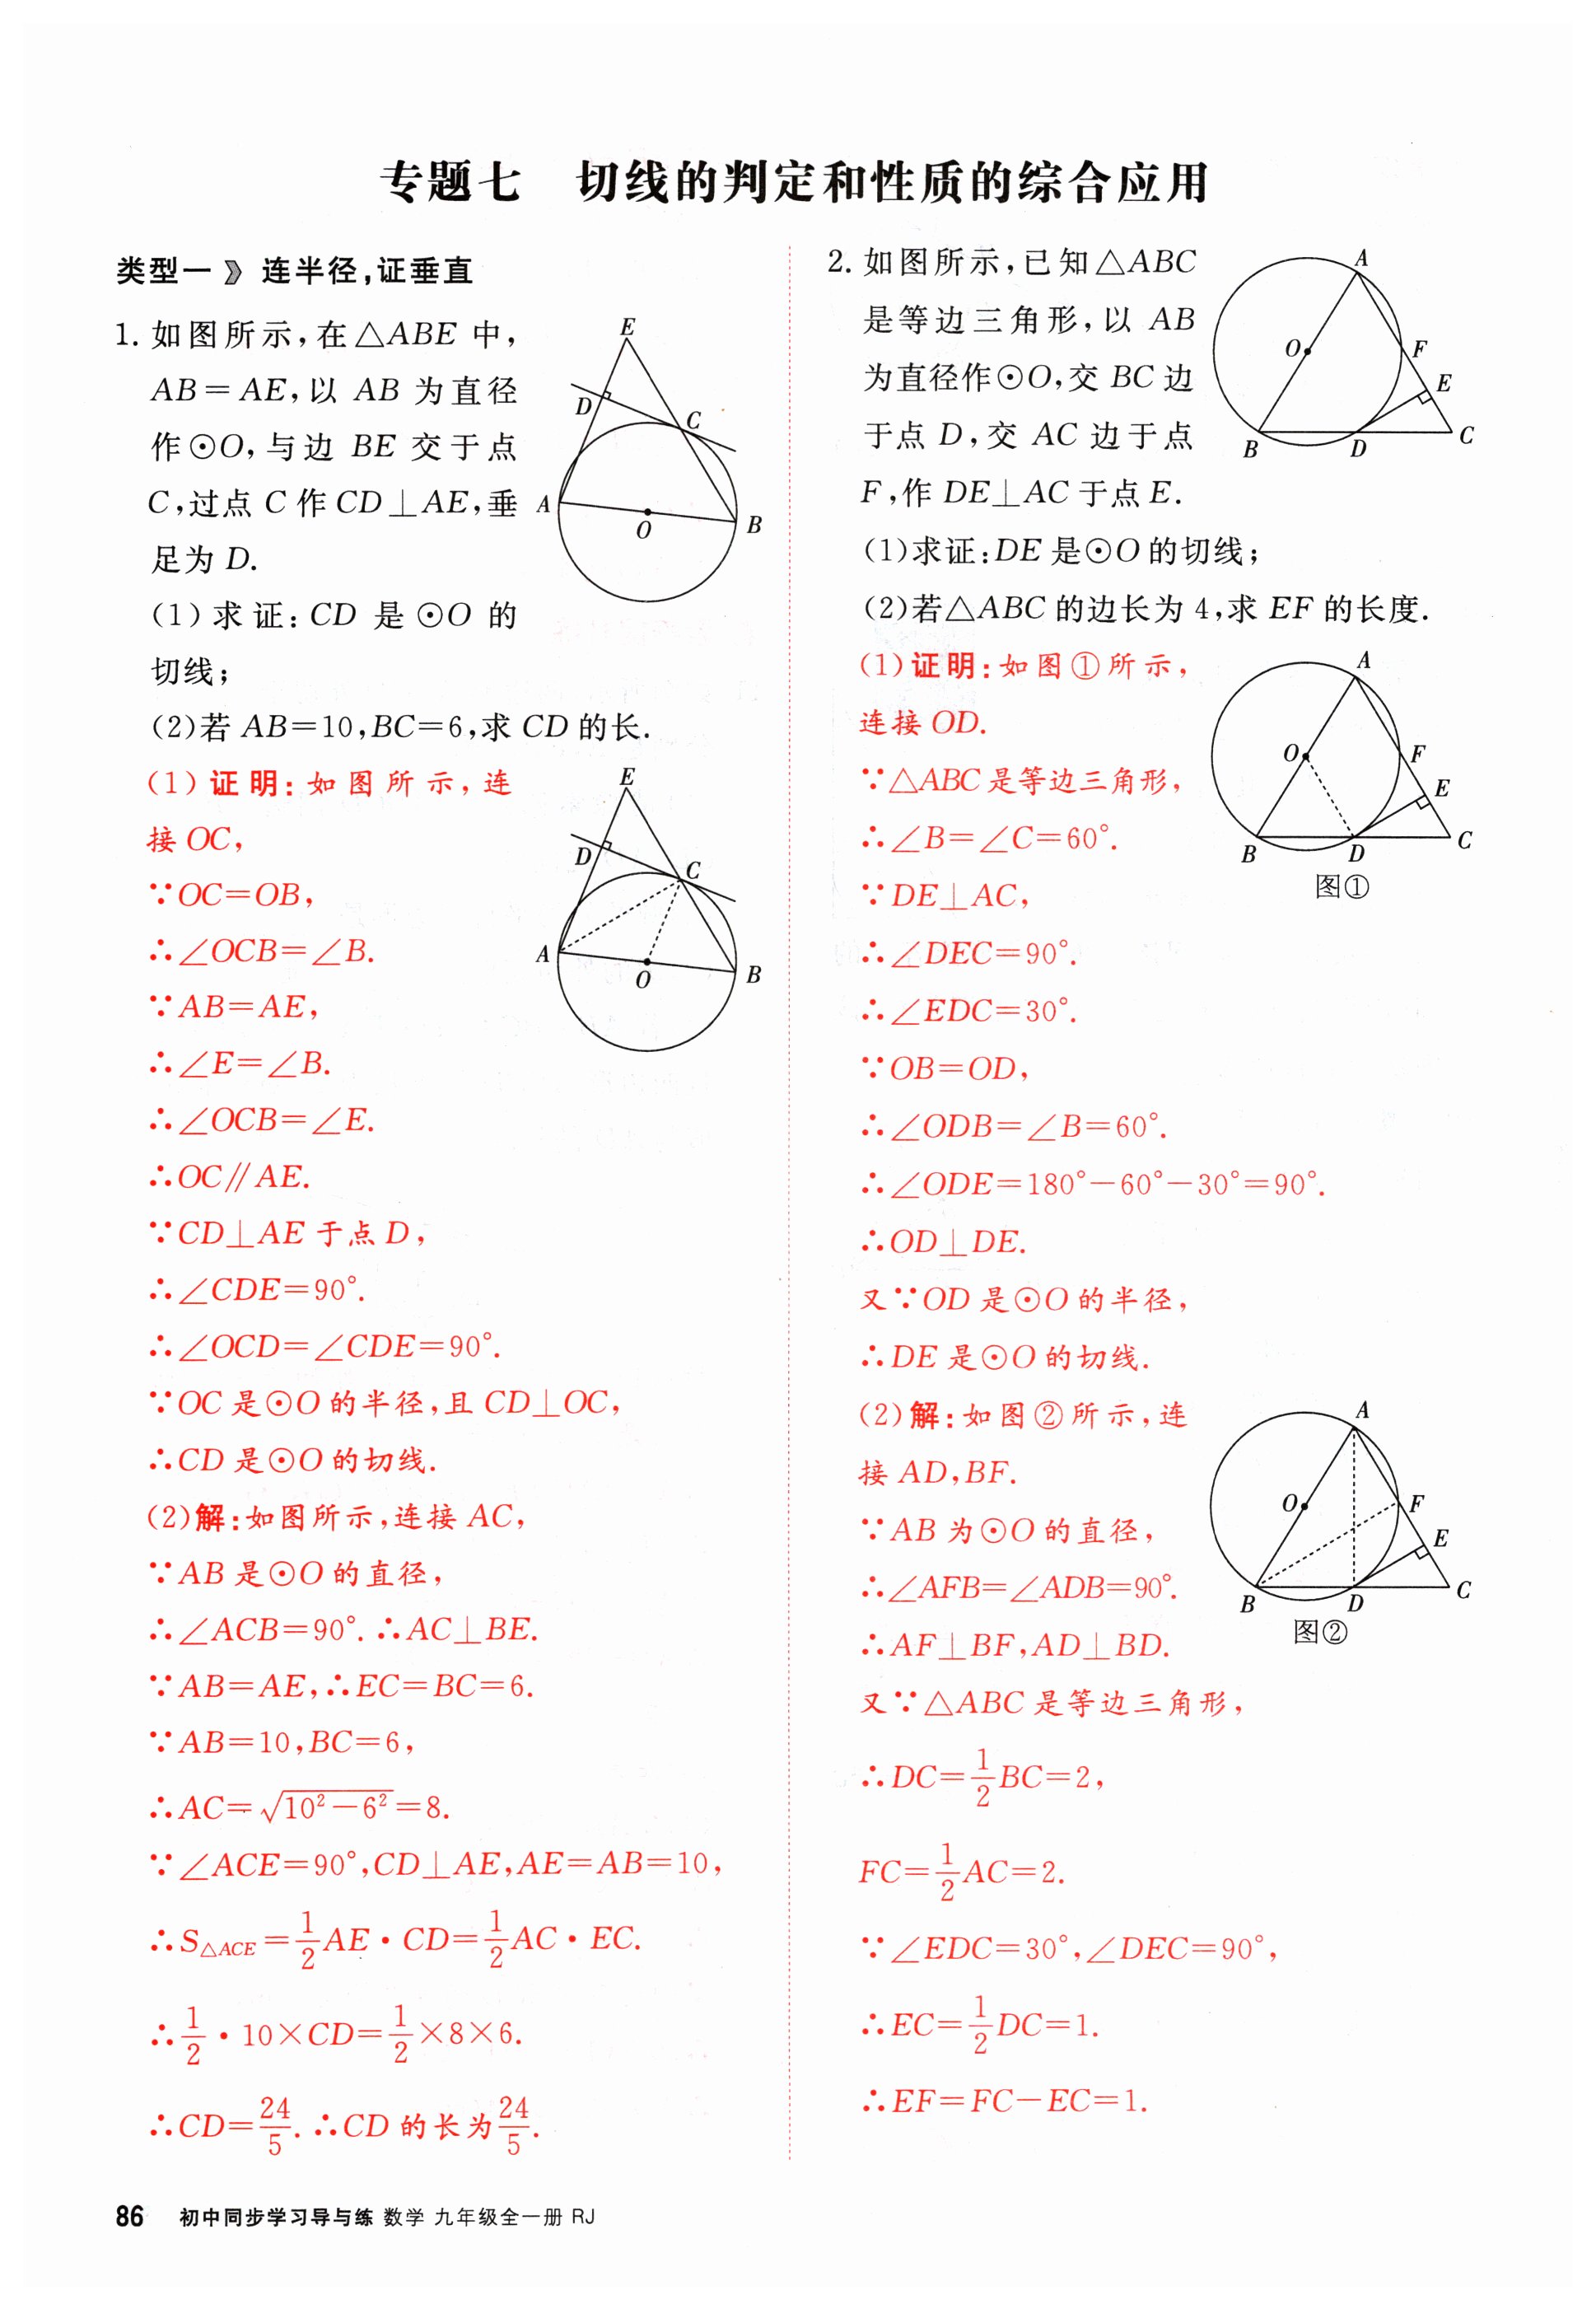 专题七 切线的判定和性质的综合应用
类型一》 连半径,证垂直
1. 如图所示,在△ABE 中,
AB=AE,以 AB 为直径
作⊙O,与边 BE 交于点
C,过点 C 作 CD⊥AE,垂
足为 D.
(1)求证:CD 是⊙O 的
切线;
(2)若 AB=10,BC=6,求 CD 的长.
E
D
C
A
O
B
(1)证明:如图所示,连
接 OC,
∵OC=OB,
∴∠OCB=∠B.
∵AB=AE,
∴∠E=∠B.
∴∠OCB=∠E.
∴OC∥AE.
∵CD⊥AE 于点 D,
∴∠CDE=90°.
∴∠OCD=∠CDE=90°.
∵OC 是⊙O 的半径,且 CD⊥OC,
∴CD 是⊙O 的切线.
E
D
C
A
O
B
(2)解:如图所示,连接 AC,
∵AB 是⊙O 的直径,
∴∠ACB=90°.∴AC⊥BE.
∵AB=AE,∴EC=BC=6.
∵AB=10,BC=6,
∴AC=√(10²-6²)=8.
∵∠ACE=90°,CD⊥AE,AE=AB=10,
∴S△ACE=1/2AE·CD=1/2AC·EC.
∴1/2·10×CD=1/2×8×6.
∴CD=24/5.∴CD 的长为24/5.
2. 如图所示,已知△ABC
是等边三角形,以 AB
为直径作⊙O,交 BC 边
于点 D,交 AC 边于点
F,作 DE⊥AC 于点 E.
(1)求证:DE 是⊙O 的切线;
(2)若△ABC 的边长为 4,求 EF 的长度.
A
O
F
E
B
D
C
(1)证明:如图①所示,
连接 OD.
∵△ABC 是等边三角形,
∴∠B=∠C=60°.
∵DE⊥AC,
∴∠DEC=90°.
∴∠EDC=30°.
∵OB=OD,
∴∠ODB=∠B=60°.
∴∠ODE=180°-60°-30°=90°.
∴OD⊥DE.
又∵OD 是⊙O 的半径,
∴DE 是⊙O 的切线.
A
O
F
E
B
D
C
图①
(2)解:如图②所示,连
接 AD,BF.
∵AB 为⊙O 的直径,
∴∠AFB=∠ADB=90°.
∴AF⊥BF,AD⊥BD.
又∵△ABC 是等边三角形,
∴DC=1/2BC=2,
FC=1/2AC=2.
∵∠EDC=30°,∠DEC=90°,
∴EC=1/2DC=1.
∴EF=FC-EC=1.
A
O
F
E
B
D
C
图②
86 初中同步学习导与练 数学 九年级全一册 RJ